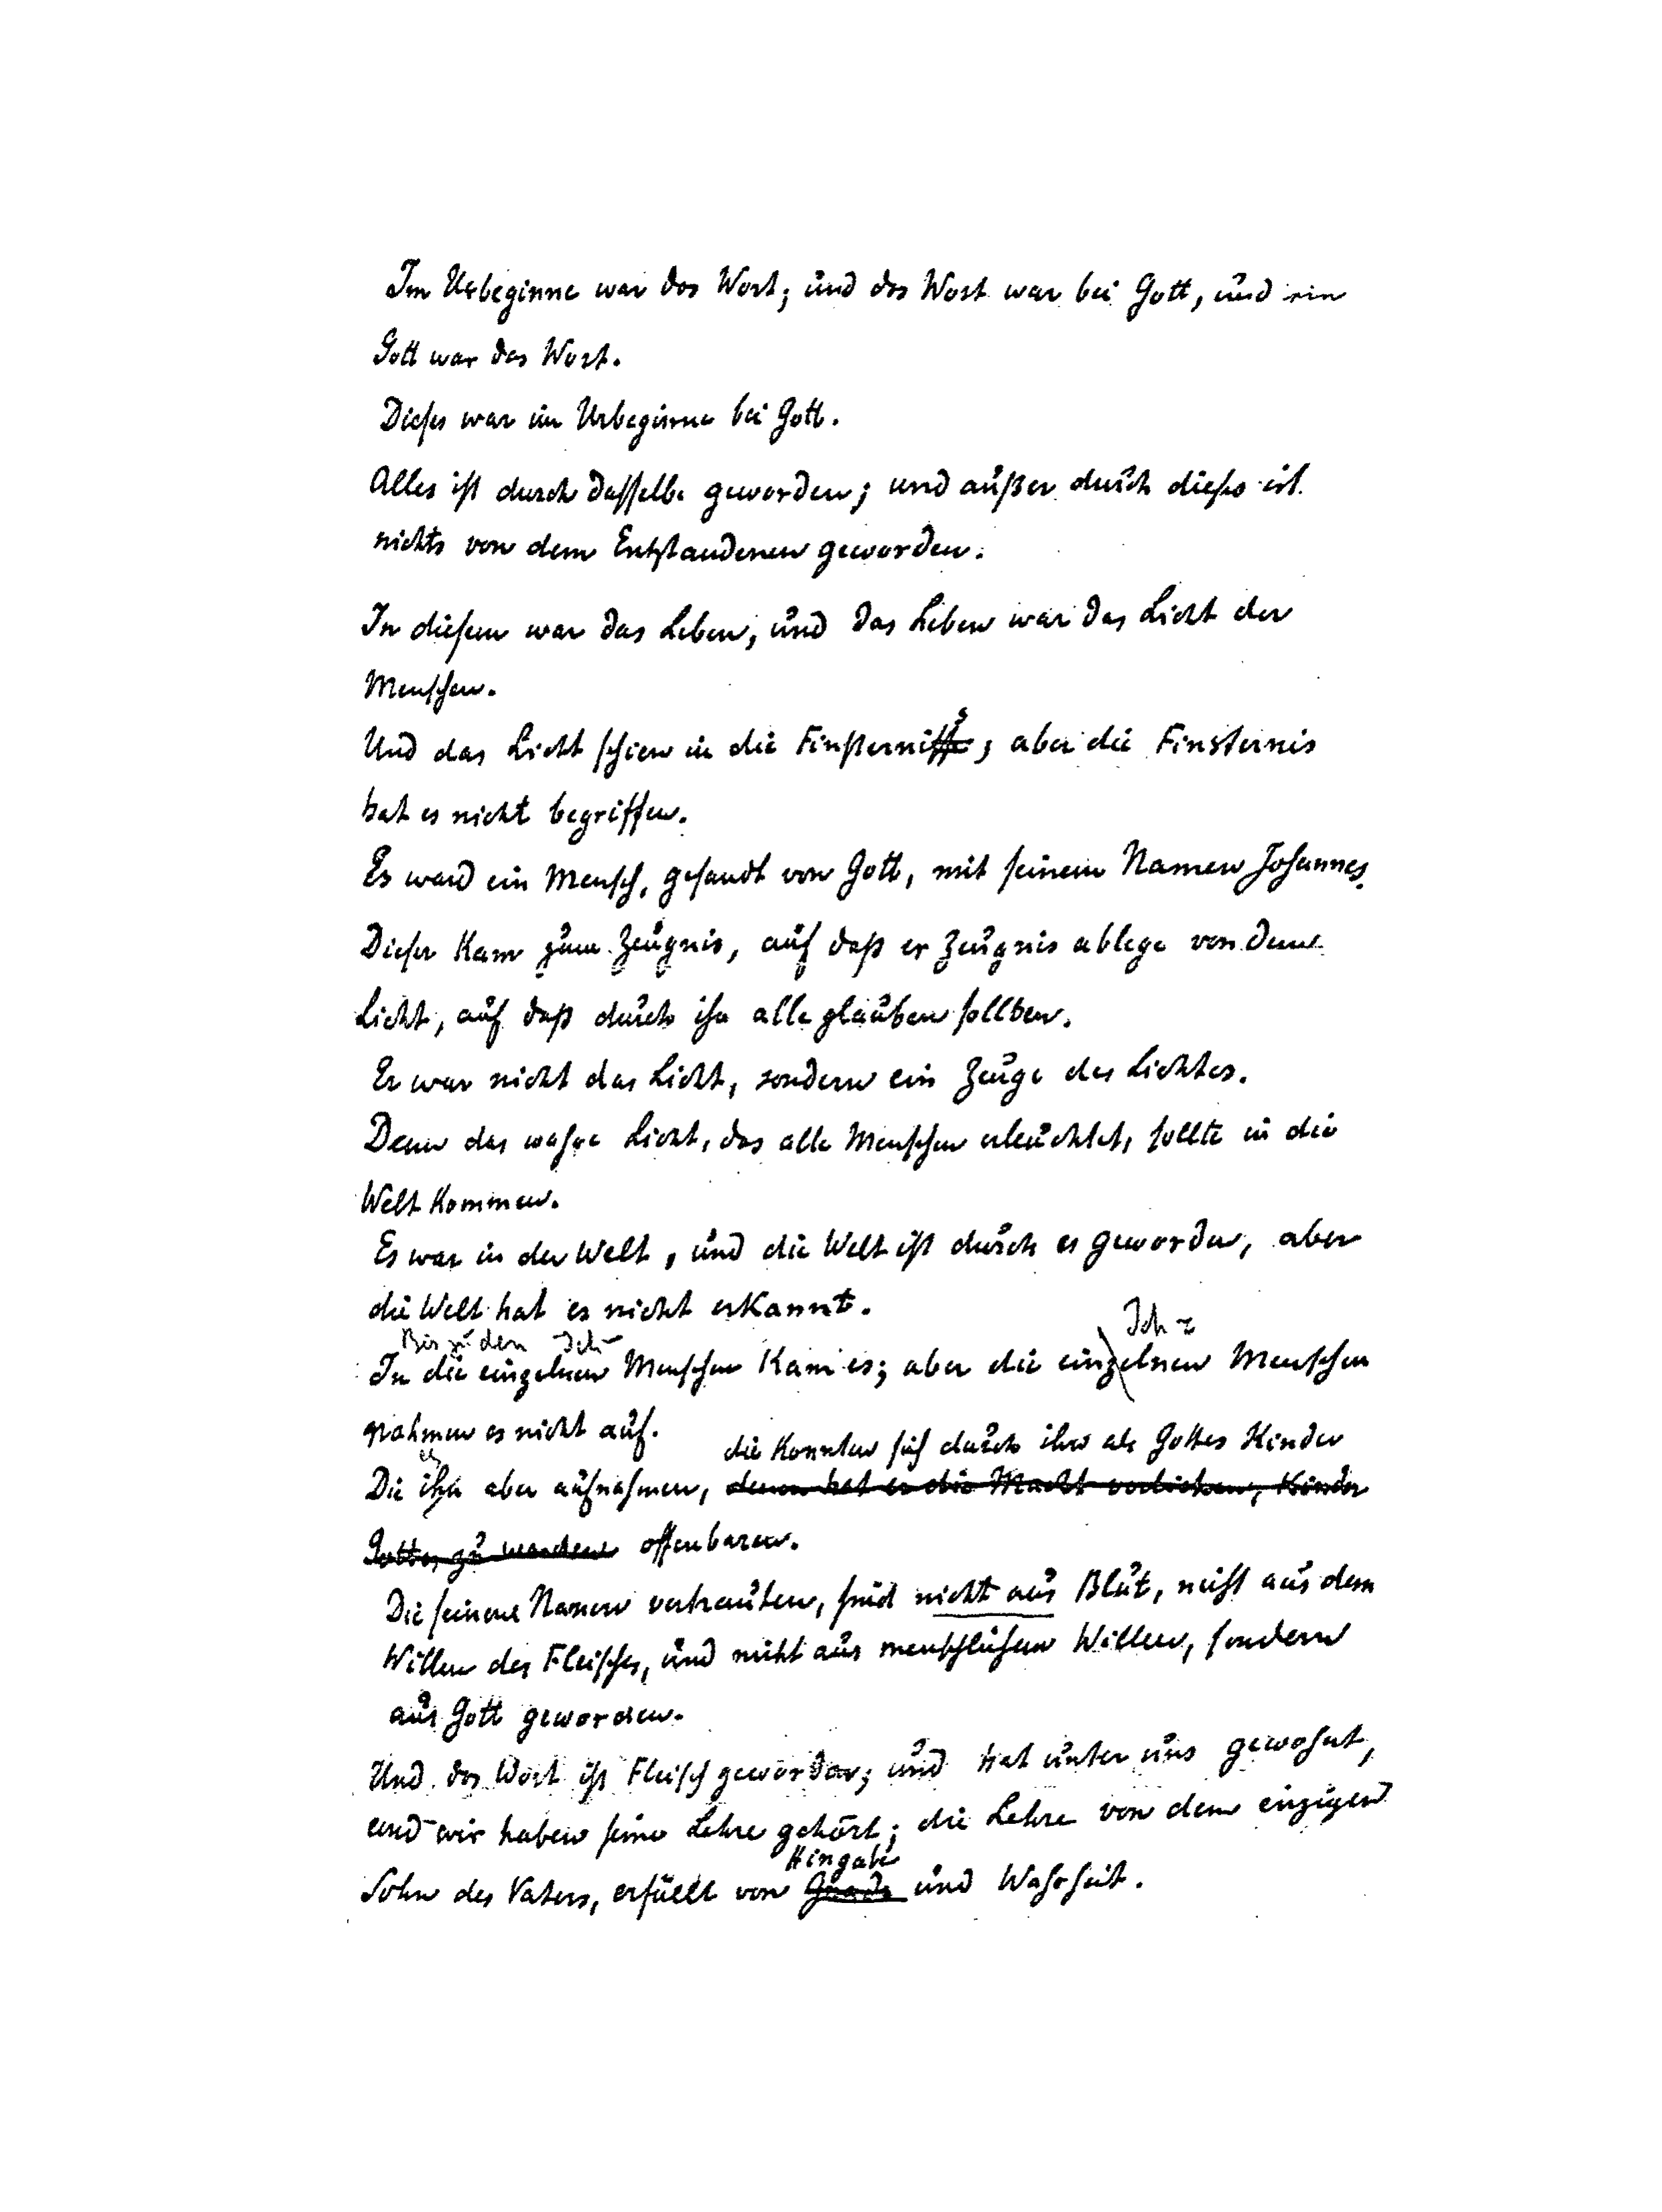 Im Urbeginne war das Wort; und das Wort war bei Gott, und ein
Gott war das Wort.
Dieses war im Urbeginne bei Gott.
Alles ist durch dasselbe geworden; und außer durch dieses ist
nichts von dem Entstandenen geworden.
In diesem war das Leben, und das Leben war das Licht der
Menschen.
Und das Licht schien in die Finsternis; aber die Finsternis
hat es nicht begriffen.
Es ward ein Mensch, gesandt von Gott, mit seinem Namen Johannes.
Dieser kam zum Zeugnis, auf daß er Zeugnis ablege von dem
Licht, auf daß durch ihn alle glauben sollten.
Er war nicht das Licht, sondern ein Zeuge des Lichtes.
Denn das wahre Licht, das alle Menschen erleuchtet, sollte in die
Welt kommen.
Es war in der Welt, und die Welt ist durch es geworden, aber
die Welt hat es nicht erkannt.
Bis zu den Ich- Ich-
In die einzelnen Menschen kam es; aber die einzelnen Menschen
nahmen es nicht auf.
die konnten sich durch ihn als Gottes Kinder
es
Die ihn aber aufnahmen, denen hat er die Macht verliehen, Kinder
Gottes zu werden offenbaren.
Die seinem Namen vertrauten, sind nicht aus Blut, nicht aus dem
Willen des Fleisches, und nicht aus menschlichem Willen, sondern
aus Gott geworden.
Und das Wort ist Fleisch geworden; und hat unter uns gewohnt,
und wir haben seine Lehre gehört; die Lehre von dem einzigen
Hingabe
Sohn des Vaters, erfüllt von Gnade und Wahrheit.